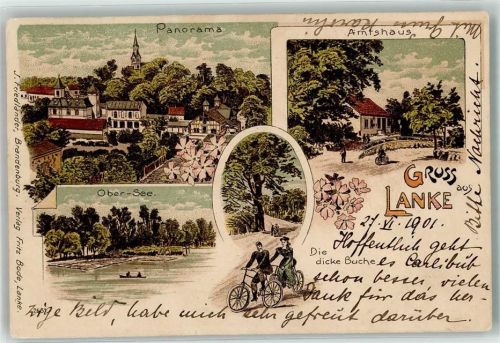 Panorama
Amtshaus
J. Friedländer, Brandenburg. Verlag Fritz Bade, Lanke.
Ober-See.
Die
dicke Buche
GRUSS aus
LANKE
27. VI. 1901.
Hoffentlich geht
es
schon besser, vielen
Dank für das her-
zige Bild, habe mich sehr gefreut darüber.
Bitte Nachricht.